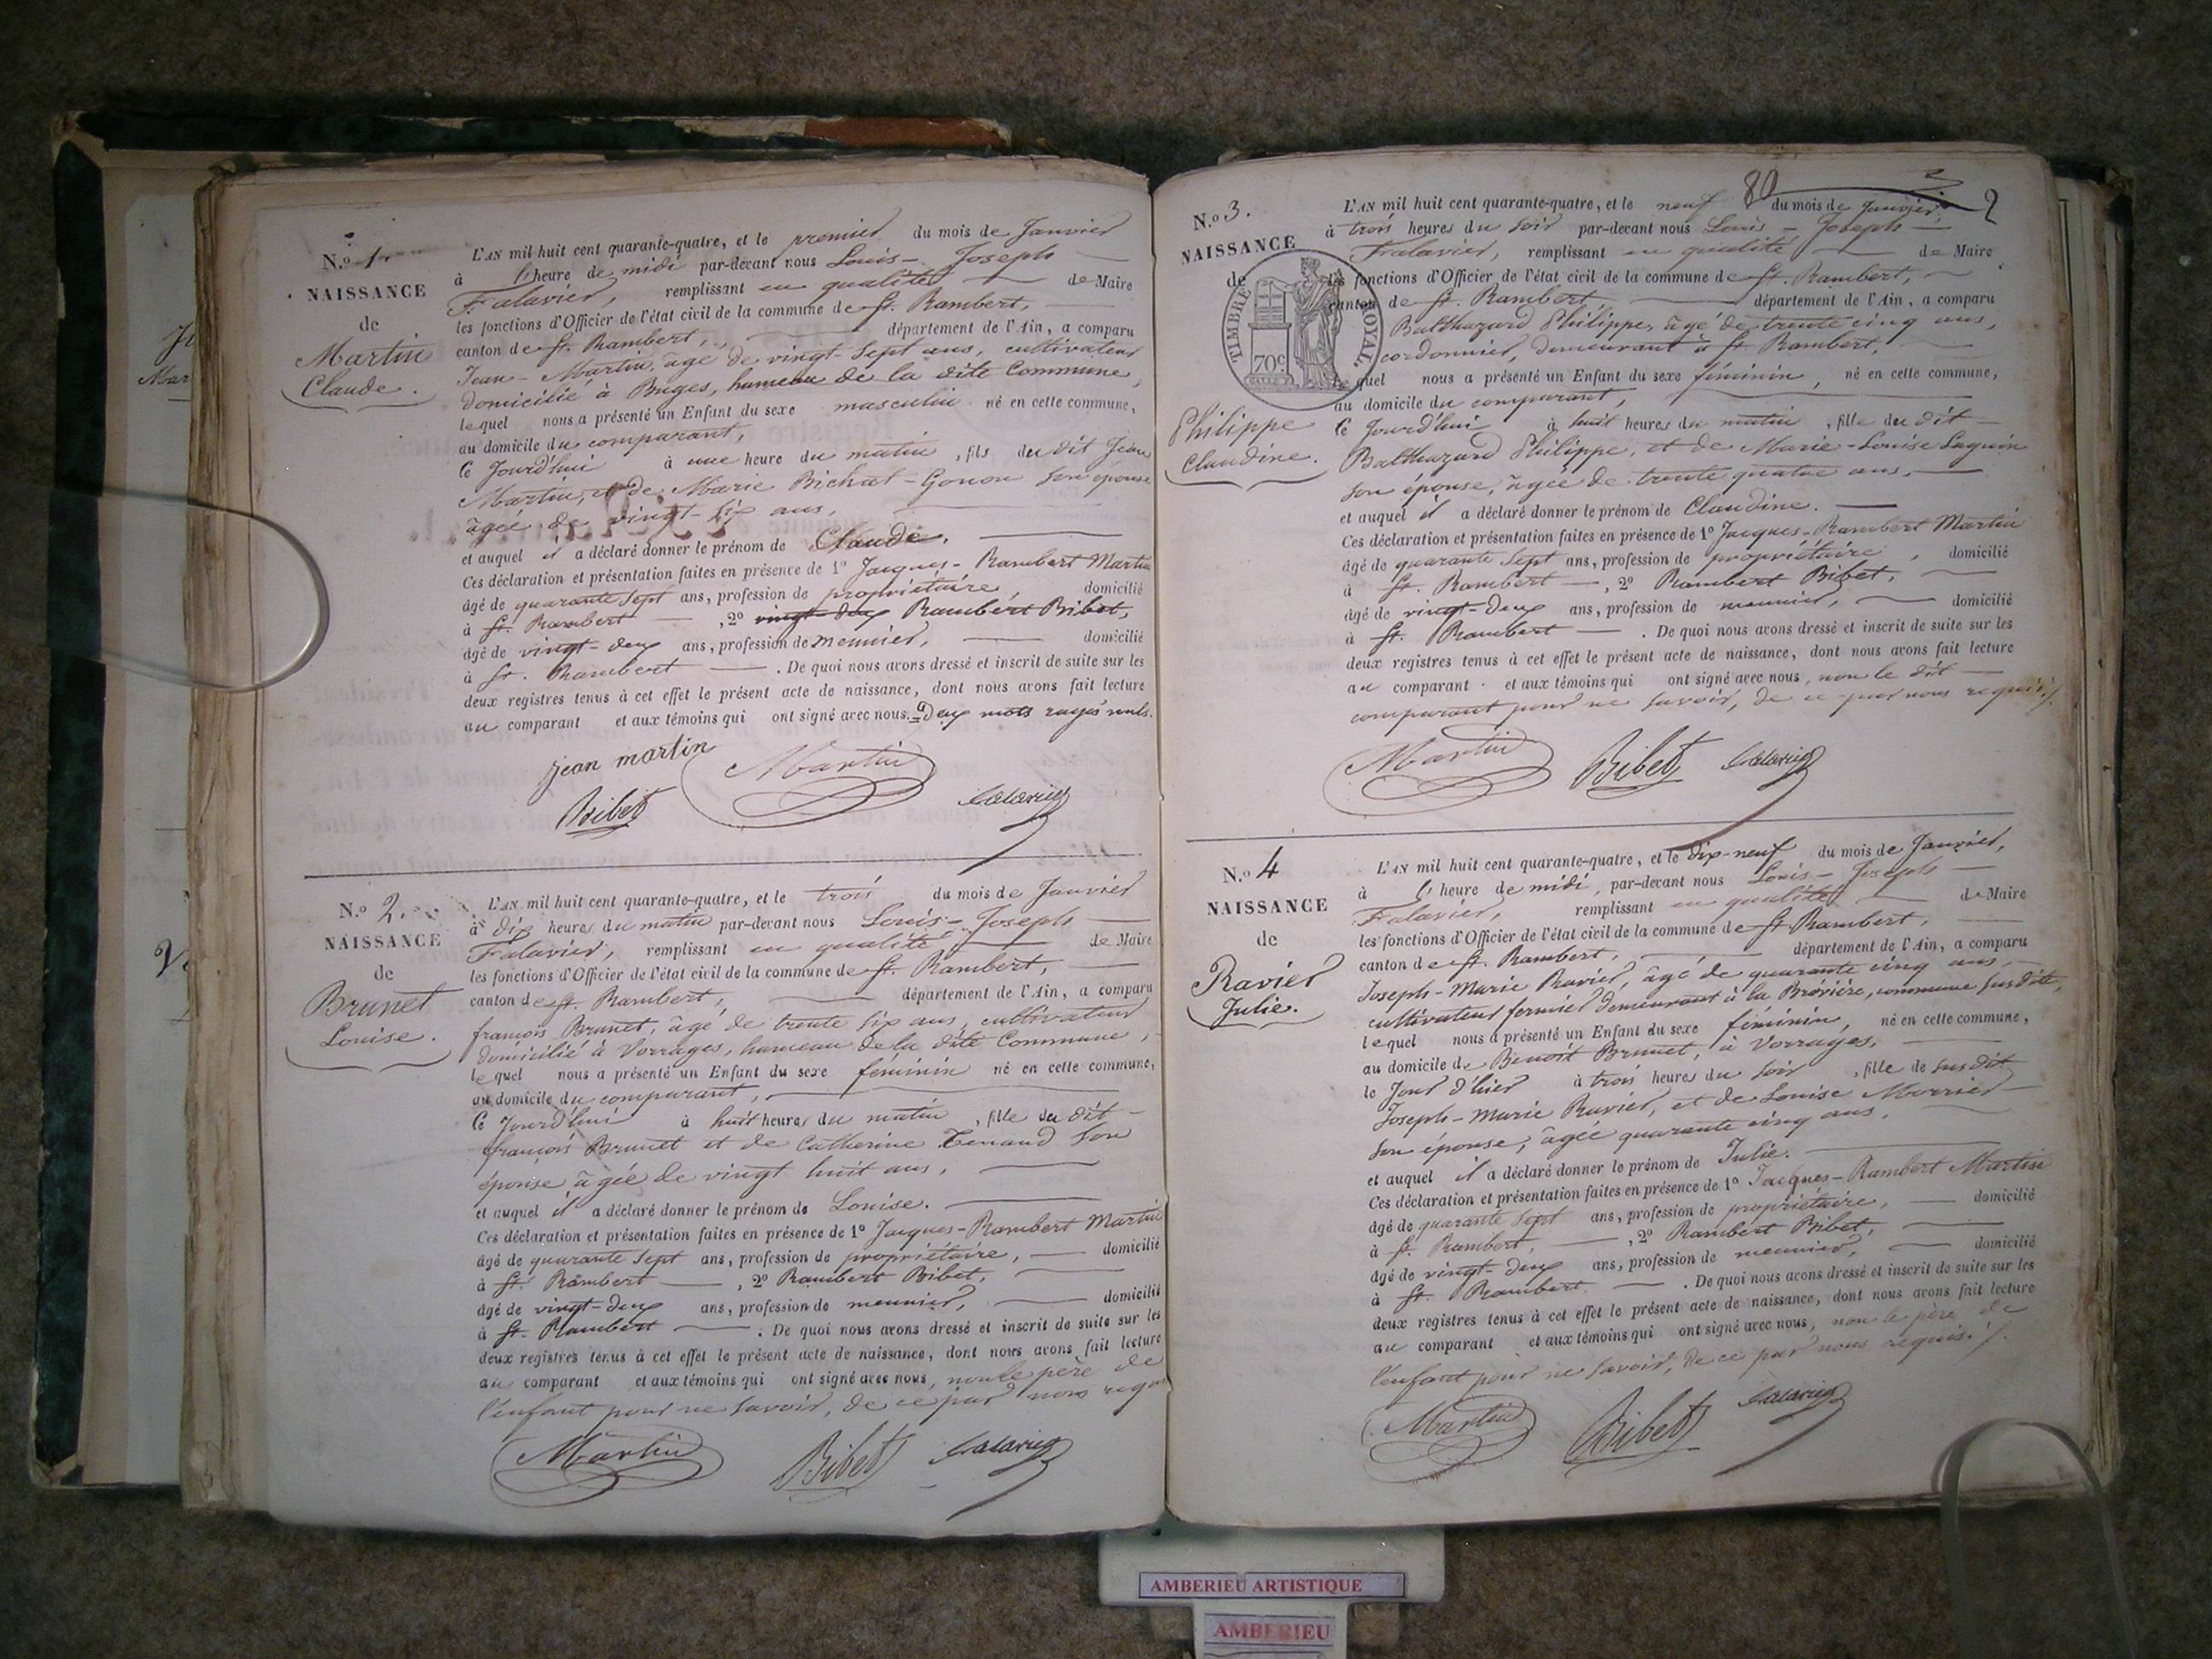 N.º 1
NAISSANCE
de
Martin
Claude.
L'AN mil huit cent quarante-quatre, et le premier du mois de Janvier
à l'heure de midi par-devant nous Louis-Joseph
Falavier, remplissant en qualité de Maire
les fonctions d'Officier de l'état civil de la commune de St. Rambert,
canton de St. Rambert, département de l'Ain, a comparu
Jean-Martin, âgé de vingt-sept ans, cultivateur
domicilié à Buges, hameau de la dite Commune,
lequel nous a présenté un Enfant du sexe masculin né en cette commune,
au domicile du comparant,
Ce Jourd'hui à une heure du matin, fils du dit Jean
Martin, et de Marie Bichat-Gonon son épouse
âgée de vingt-six ans,
et auquel il a déclaré donner le prénom de Claude.
Ces déclaration et présentation faites en présence de 1º Jacques-Rambert Martin
âgé de quarante sept ans, profession de propriétaire domicilié
à St. Rambert, 2º vingt-deux Rambert Bibet,
âgé de vingt-deux ans, profession de meunier, domicilié
à St. Rambert. De quoi nous avons dressé et inscrit de suite sur les
deux registres tenus à cet effet le présent acte de naissance, dont nous avons fait lecture
au comparant et aux témoins qui ont signé avec nous. deux mots rayés nuls.
jean martin Martin
Bibet Falavier
N.º 2.
NAISSANCE
de
Brunet
Louise.
L'AN mil huit cent quarante-quatre, et le trois du mois de Janvier
à dix heures du matin par-devant nous Louis-Joseph
Falavier, remplissant en qualité de Maire
les fonctions d'Officier de l'état civil de la commune de St. Rambert,
canton de St. Rambert, département de l'Ain, a comparu
françois Brunet, âgé de trente six ans, cultivateur
domicilié à Vorrages, hameau de la dite Commune,
lequel nous a présenté un Enfant du sexe féminin né en cette commune,
au domicile du comparant,
Ce Jourd'hui à huit heures du matin, fille du dit
françois Brunet et de Catherine Tenand son
épouse âgée de vingt huit ans,
et auquel il a déclaré donner le prénom de Louise.
Ces déclaration et présentation faites en présence de 1º Jacques-Rambert Martin
âgé de quarante sept ans, profession de propriétaire, domicilié
à St. Rambert, 2º Rambert Bibet,
âgé de vingt-deux ans, profession de meunier, domicilié
à St. Rambert. De quoi nous avons dressé et inscrit de suite sur les
deux registres tenus à cet effet le présent acte de naissance, dont nous avons fait lecture
au comparant et aux témoins qui ont signé avec nous, non le père de
l'enfant pour ne savoir, de ce par nous requis
Martin Bibet Falavier
80 2
N.º 3.
NAISSANCE
de
TIMBRE ROYAL
70c
Philippe
Claudine.
L'AN mil huit cent quarante-quatre, et le neuf du mois de Janvier,
à trois heures du soir par-devant nous Louis-Joseph
Falavier, remplissant en qualité de Maire
les fonctions d'Officier de l'état civil de la commune de St. Rambert,
canton de St. Rambert, département de l'Ain, a comparu
Balthazard Philippe, âgé de trente cinq ans,
cordonnier, demeurant à St. Rambert,
lequel nous a présenté un Enfant du sexe féminin, né en cette commune,
au domicile du comparant,
Ce Jourd'hui à huit heures du matin, fille du dit
Balthazard Philippe, et de Marie-Louise Luquin
son épouse, âgée de trente quatre ans,
et auquel il a déclaré donner le prénom de Claudine.
Ces déclaration et présentation faites en présence de 1º Jacques-Rambert Martin
âgé de quarante sept ans, profession de propriétaire, domicilié
à St. Rambert, 2º Rambert Bibet,
âgé de vingt-deux ans, profession de meunier, domicilié
à St. Rambert. De quoi nous avons dressé et inscrit de suite sur les
deux registres tenus à cet effet le présent acte de naissance, dont nous avons fait lecture
au comparant et aux témoins qui ont signé avec nous, non le dit
comparant pour ne savoir, de ce par nous requis./.
Martin Bibet Falavier
N.º 4
NAISSANCE
de
Ravier
Julie.
L'AN mil huit cent quarante-quatre, et le dix-neuf du mois de Janvier,
à l'heure de midi, par-devant nous Louis-Joseph
Falavier, remplissant en qualité de Maire
les fonctions d'Officier de l'état civil de la commune de St. Rambert,
canton de St. Rambert, département de l'Ain, a comparu
Joseph-Marie Ravier, âgé de quarante cinq ans,
cultivateur fermier demeurant à la Brévière, commune susdite,
lequel nous a présenté un Enfant du sexe féminin, né en cette commune,
au domicile de Benoit Brunet, à Vorrages,
le Jour d'hier à trois heures du soir, fille de susdit
Joseph-Marie Ravier, et de Louise Morrier
son épouse, âgée quarante cinq ans,
et auquel il a déclaré donner le prénom de Julie.
Ces déclaration et présentation faites en présence de 1º Jacques-Rambert Martin
âgé de quarante sept ans, profession de propriétaire, domicilié
à St. Rambert, 2º Rambert Bibet,
âgé de vingt-deux ans, profession de meunier, domicilié
à St. Rambert. De quoi nous avons dressé et inscrit de suite sur les
deux registres tenus à cet effet le présent acte de naissance, dont nous avons fait lecture
au comparant et aux témoins qui ont signé avec nous, non le père de
l'enfant pour ne savoir, de ce par nous requis./.
Martin Bibet Falavier
AMBERIEU ARTISTIQUE
AMBERIEU